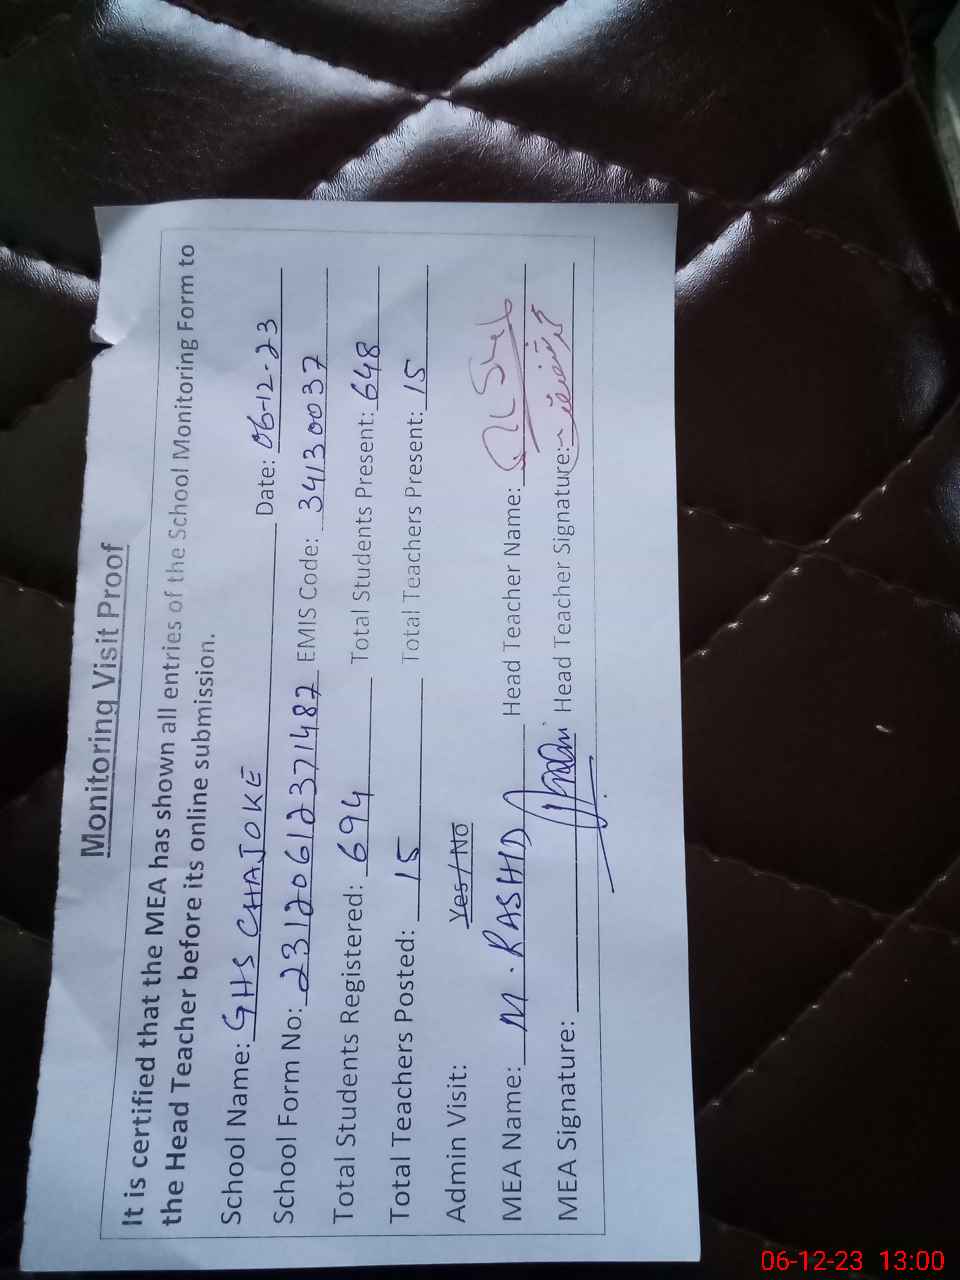 Monitoring Visit Proof
It is certified that the MEA has shown all entries of the School Monitoring Form to
the Head Teacher before its online submission.
School Name: GHS CHAJOKE Date: 06-12-23
School Form No: 231206123371487 EMIS Code: 34130037
Total Students Registered: 694 Total Students Present: 648
Total Teachers Posted: 15 Total Teachers Present: 15
Admin Visit: Yes/No
MEA Name: M. RASHID Head Teacher Name:
MEA Signature: Head Teacher Signature:
06-12-23 13:00